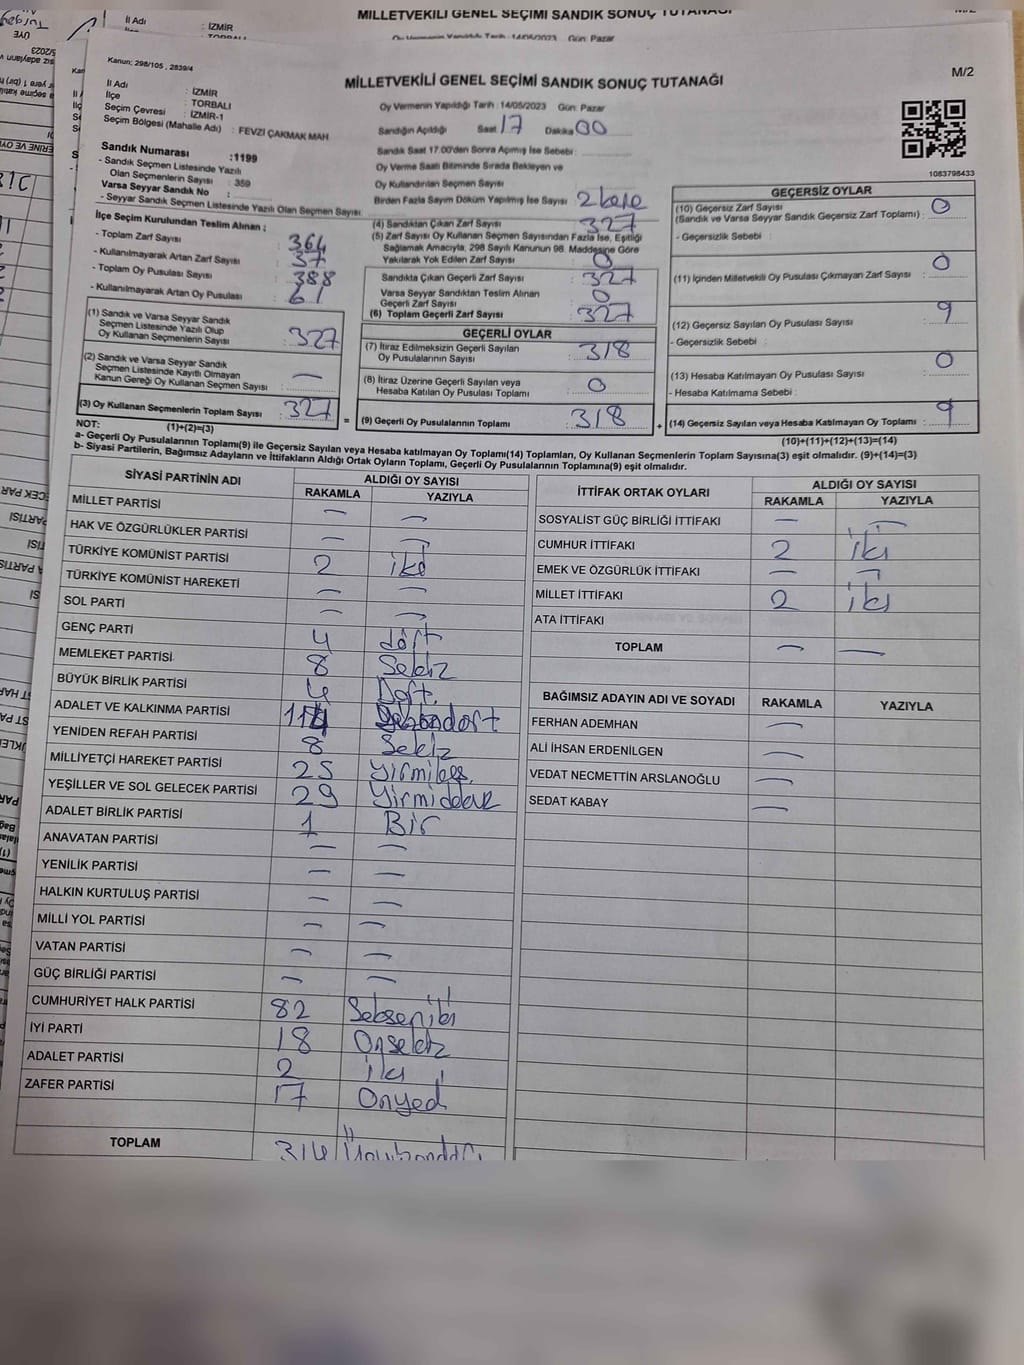 MİLLETVEKİLİ GENEL SEÇİMİ SANDIK SONUÇ TUTANAĞI
İl Adı : İZMİR
Oy Vermenin Yapıldığı Tarih : 14/05/2023 Gün: Pazar
Kanun: 298/105 , 2839/4
M/2
MİLLETVEKİLİ GENEL SEÇİMİ SANDIK SONUÇ TUTANAĞI
İl Adı : İZMİR
İlçe : TORBALI
Seçim Çevresi : İZMİR-1
Seçim Bölgesi (Mahalle Adı) : FEVZİ ÇAKMAK MAH
Oy Vermenin Yapıldığı Tarih : 14/05/2023 Gün: Pazar
Sandığın Açıldığı Saat 17 Dakika 00
Sandık Saat 17.00'den Sonra Açımış İse Sebebi :
Oy Verme Saati Bitiminde Sırada Bekleyen ve
Oy Kullandırılan Seçmen Sayısı
Birden Fazla Sayım Döküm Yapılmış İse Sayısı 2 kere
1083798433
Sandık Numarası :1199
- Sandık Seçmen Listesinde Yazılı
Olan Seçmenlerin Sayısı : 359
Varsa Seyyar Sandık No :
- Seyyar Sandık Seçmen Listesinde Yazılı Olan Seçmen Sayısı
İlçe Seçim Kurulundan Teslim Alınan ;
- Toplam Zarf Sayısı 364
- Kullanılmayarak Artan Zarf Sayısı 37
- Toplam Oy Pusulası Sayısı 388
- Kullanılmayarak Artan Oy Pusulası 61
(1) Sandık ve Varsa Seyyar Sandık
Seçmen Listesinde Yazılı Olup
Oy Kullanan Seçmenlerin Sayısı : 327
(2) Sandık ve Varsa Seyyar Sandık
Seçmen Listesinde Kayıtlı Olmayan
Kanun Gereği Oy Kullanan Seçmen Sayısı : —
(3) Oy Kullanan Seçmenlerin Toplam Sayısı : 327
(4) Sandıktan Çıkan Zarf Sayısı : 327
(5) Zarf Sayısı Oy Kullanan Seçmen Sayısından Fazla İse, Eşitliği
Sağlamak Amacıyla, 298 Sayılı Kanunun 98. Maddesine Göre
Yakılarak Yok Edilen Zarf Sayısı : 0
Sandıkta Çıkan Geçerli Zarf Sayısı : 327
Varsa Seyyar Sandıktan Teslim Alınan
Geçerli Zarf Sayısı : 0
(6) Toplam Geçerli Zarf Sayısı : 327
GEÇERLİ OYLAR
(7) İtiraz Edilmeksizin Geçerli Sayılan
Oy Pusulalarının Sayısı : 318
(8) İtiraz Üzerine Geçerli Sayılan veya
Hesaba Katılan Oy Pusulası Toplamı : 0
= (9) Geçerli Oy Pusulalarının Toplamı : 318
GEÇERSİZ OYLAR
(10) Geçersiz Zarf Sayısı
(Sandık ve Varsa Seyyar Sandık Geçersiz Zarf Toplamı) : 0
- Geçersizlik Sebebi :
(11) İçinden Milletvekili Oy Pusulası Çıkmayan Zarf Sayısı : 0
(12) Geçersiz Sayılan Oy Pusulası Sayısı : 9
- Geçersizlik Sebebi :
(13) Hesaba Katılmayan Oy Pusulası Sayısı : 0
- Hesaba Katılmama Sebebi :
+ (14) Geçersiz Sayılan veya Hesaba Katılmayan Oy Toplamı : 9
NOT: (1)+(2)=(3)
(10)+(11)+(12)+(13)=(14)
a- Geçerli Oy Pusulalarının Toplamı(9) ile Geçersiz Sayılan veya Hesaba katılmayan Oy Toplamı(14) Toplamları, Oy Kullanan Seçmenlerin Toplam Sayısına(3) eşit olmalıdır. (9)+(14)=(3)
b- Siyasi Partilerin, Bağımsız Adayların ve İttifakların Aldığı Ortak Oyların Toplamı, Geçerli Oy Pusulalarının Toplamına(9) eşit olmalıdır.
SİYASİ PARTİNİN ADI ALDIĞI OY SAYISI
RAKAMLA YAZIYLA
MİLLET PARTİSİ — —
HAK VE ÖZGÜRLÜKLER PARTİSİ — —
TÜRKİYE KOMÜNİST PARTİSİ 2 iki
TÜRKİYE KOMÜNİST HAREKETİ — —
SOL PARTİ — —
GENÇ PARTİ 4 dört
MEMLEKET PARTİSİ 8 Sekiz
BÜYÜK BİRLİK PARTİSİ 4 Dört.
ADALET VE KALKINMA PARTİSİ 114
YENİDEN REFAH PARTİSİ 8 Sekiz
MİLLİYETÇİ HAREKET PARTİSİ 25 Yirmibeş.
YEŞİLLER VE SOL GELECEK PARTİSİ 29 Yirmidokuz
ADALET BİRLİK PARTİSİ 1 Bir
ANAVATAN PARTİSİ — —
YENİLİK PARTİSİ — —
HALKIN KURTULUŞ PARTİSİ — —
MİLLİ YOL PARTİSİ — —
VATAN PARTİSİ — —
GÜÇ BİRLİĞİ PARTİSİ — —
CUMHURİYET HALK PARTİSİ 82 Sekseniki
İYİ PARTİ 18 Onsekiz
ADALET PARTİSİ 2 iki
ZAFER PARTİSİ 17 Onyedi
TOPLAM 314
İTTİFAK ORTAK OYLARI ALDIĞI OY SAYISI
RAKAMLA YAZIYLA
SOSYALİST GÜÇ BİRLİĞİ İTTİFAKI — —
CUMHUR İTTİFAKI 2 iki
EMEK VE ÖZGÜRLÜK İTTİFAKI — —
MİLLET İTTİFAKI 2 iki
ATA İTTİFAKI
TOPLAM — —
BAĞIMSIZ ADAYIN ADI VE SOYADI RAKAMLA YAZIYLA
FERHAN ADEMHAN —
ALİ İHSAN ERDENİLGEN —
VEDAT NECMETTİN ARSLANOĞLU —
SEDAT KABAY —